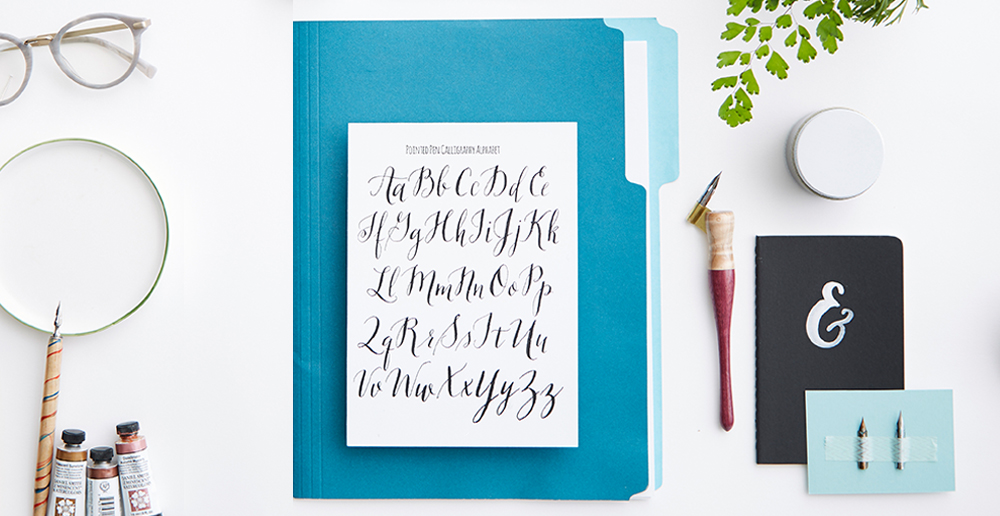 Pointed Pen Calligraphy Alphabet
Aa Bb Cc Dd Ee
Ff Gg Hh Ii Jj Kk
Ll Mm Nn Oo Pp
Qq Rr Ss Tt Uu
Vv Ww Xx Yy Zz
&